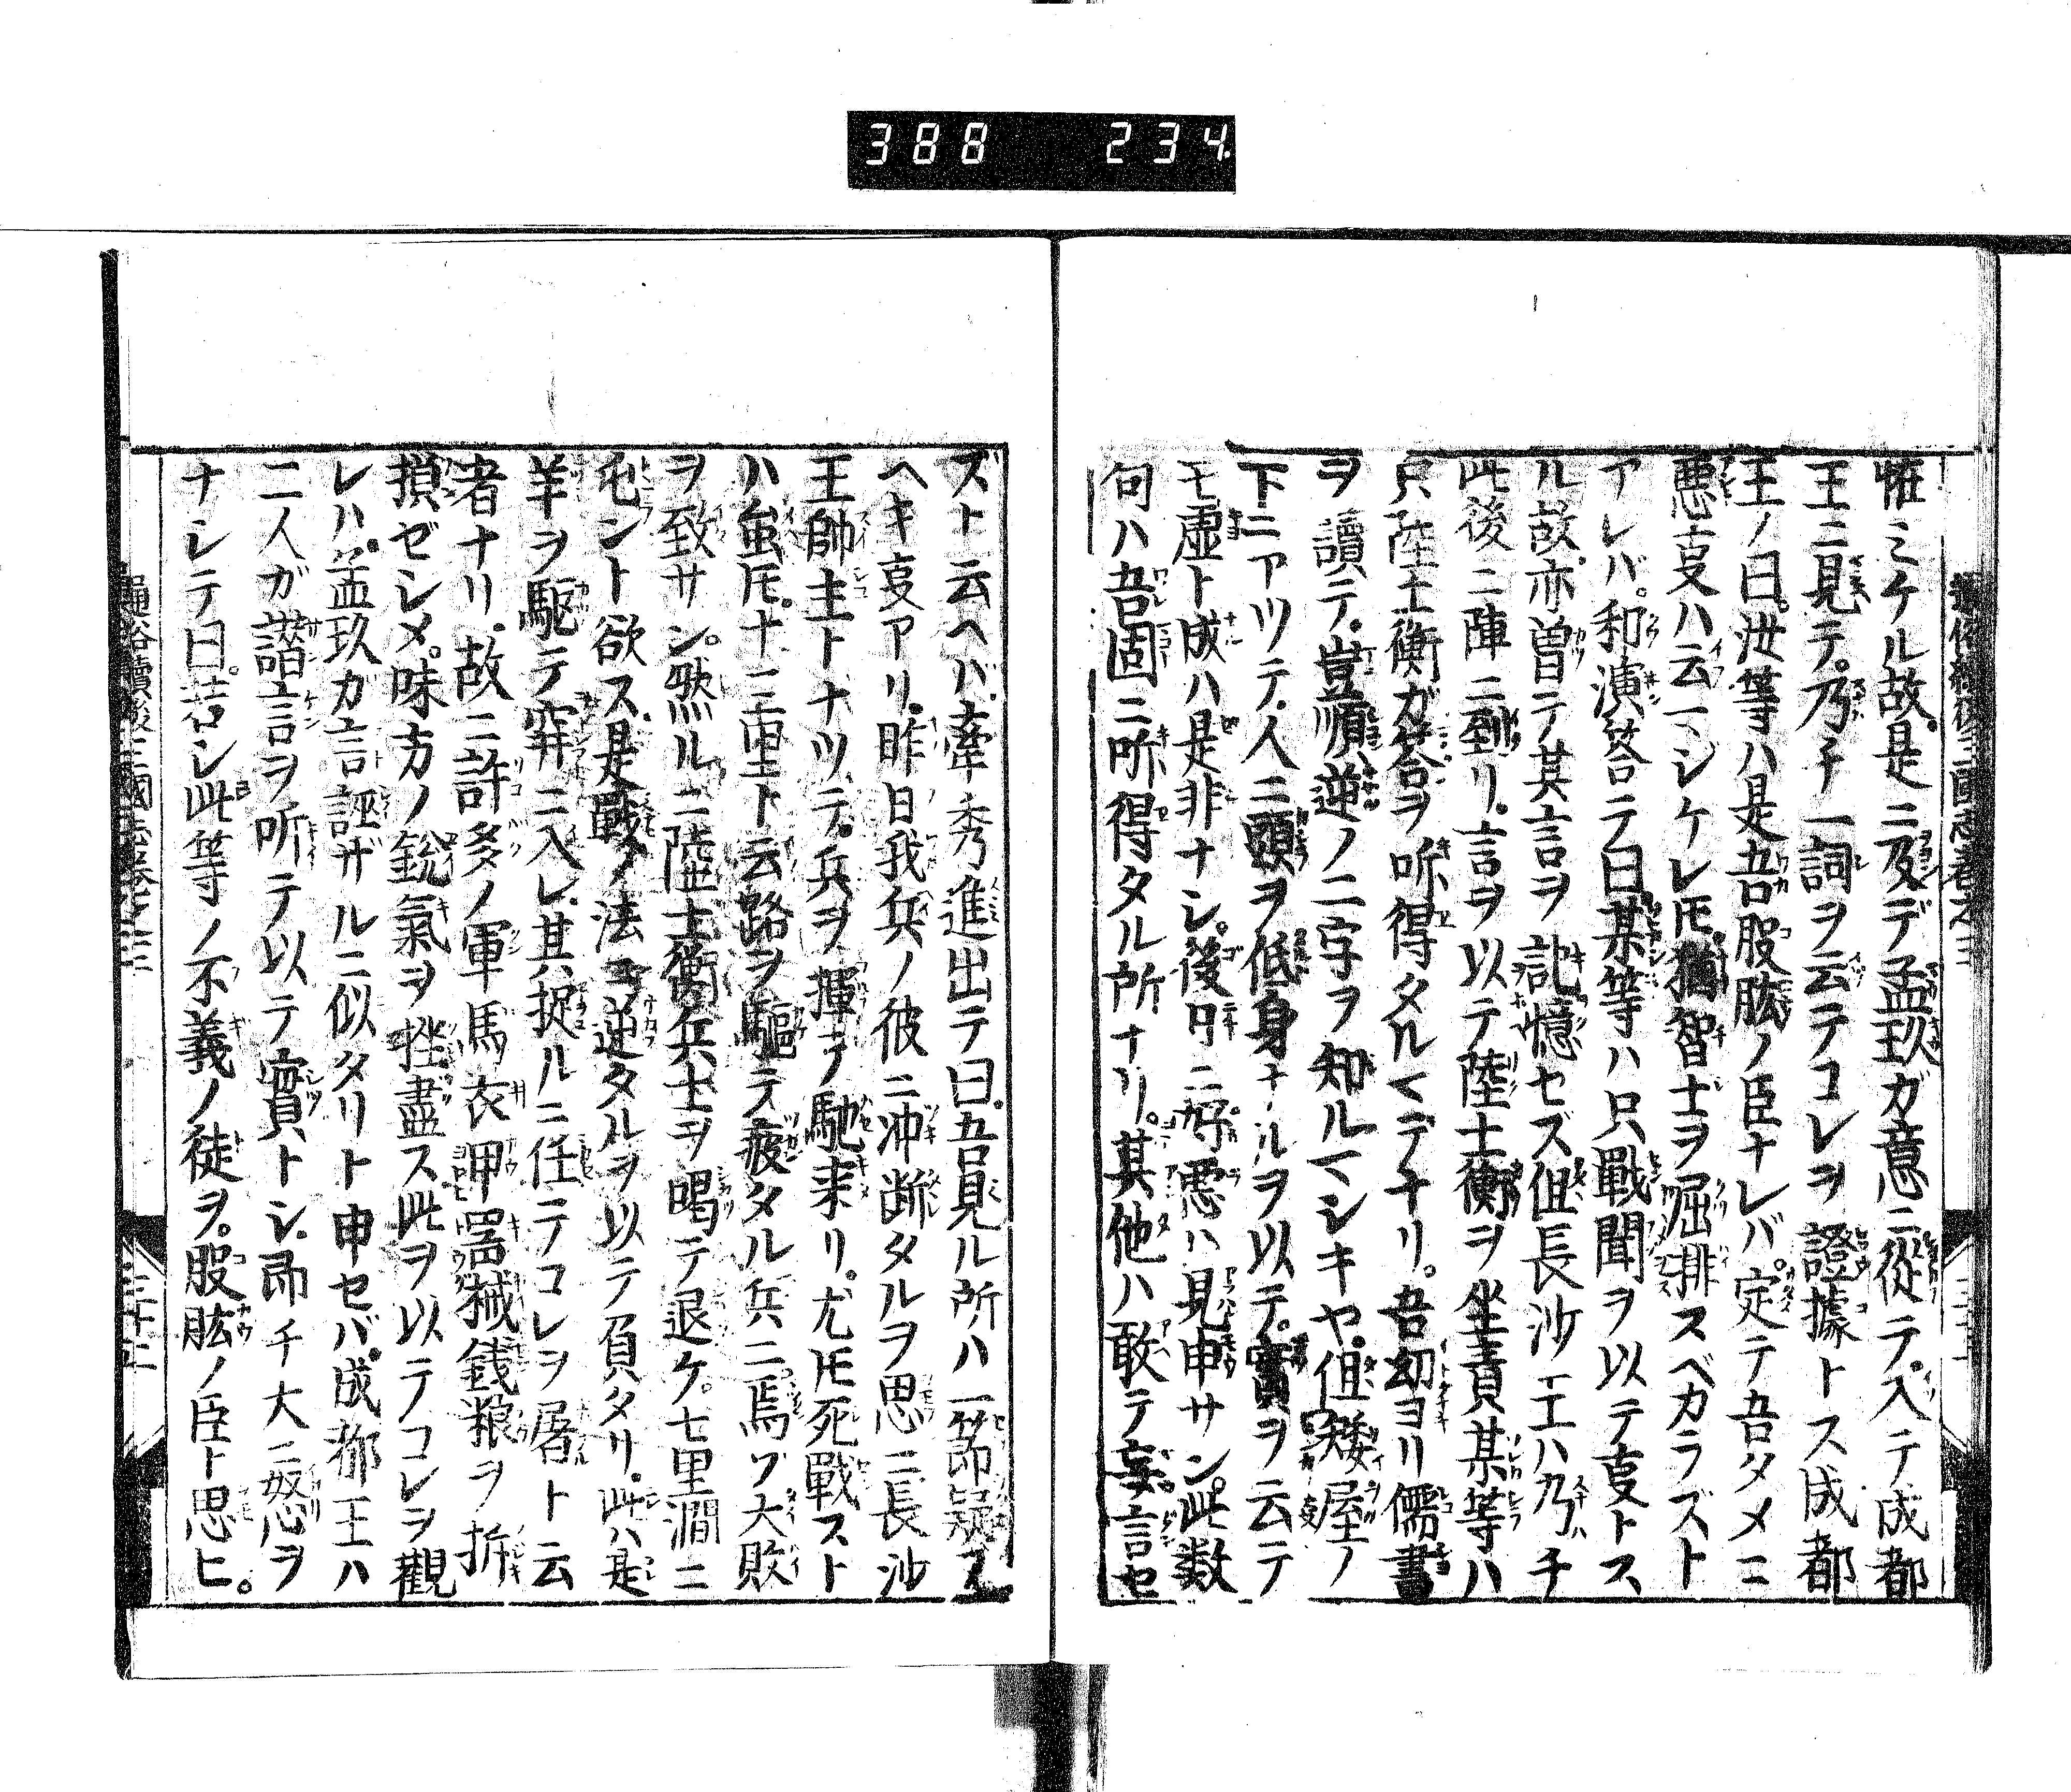 388 234
惟ミケル故是ニ及デ孟玖ガ意ニ從テ入テ成都
王ニ見テ乃チ一詞ヲ云テコレヲ證據トス成都
王ノ曰汝等ハ是吾股肱ノ臣ナレバ定テ吾タメニ
悪叓ハ云マジケレ𪜈猶智ギ士ヲ屈排スベカラズト
アレバ和演答テ曰某等ハ只戰聞ヲ以テ叓トス
ル故亦曽テ其言ヲ記憶セズ但長沙王ハ乃チ
此後ニ陣ニ到リ言ヲ以テ陸士衡ヲ坐責某等ハ
只陸士衡ガ答ヲ听得タルマデナリ吾幼ヨリ儒書
ヲ讀テ豈順逆ノ二字ヲ知ルマシキヤ但矮屋ノ
下ニアツテ人ニ頭ヲ低身ナルヲ以テ實ヲ云テ
モ虚ト成ハ是非ナシ後日ニ好悪ハ見申サン此数
句ハ吾固ニ听得タル所ナリ其他ハ敢テ妄言セ
ズト云ヘバ牽秀進出テ曰吾見ル所ハ一節疑フ
ヘキ叓アリ昨日我兵ノ彼ニ冲断タルヲ思ニ長沙
王帥主トナツテ兵ヲ揮テ馳来リ尤𪜈死戰スト
ハ虽𪜈十三里ト云路ヲ驅テ疲タル兵ニ焉ゾ大敗
ヲ致サン然ルニ陸士衡兵士ヲ喝テ退ケ七里澗ニ
屯ント欲ス是戰ノ法ヲ逆タルヲ以テ負タリ此ハ是
羊ヲ駆テ穽ニ入レ其捉ルニ任テコレヲ屠ト云
者ナリ故ニ許多ノ軍馬衣甲噐械銭粮ヲ折
損ゼシメ味方ノ銳氣ヲ挫盡ス此ヲ以テコレヲ觀
レハ孟玖ガ言誣ザルニ似タリト申セバ成都王ハ
二人ガ譖言ヲ听テ以テ實トシ即チ大ニ怒ヲ
ナレテ曰若シ此等ノ不義ノ徒ヲ股肱ノ臣ト思ヒ
通俗續後三國志卷之三
三十二